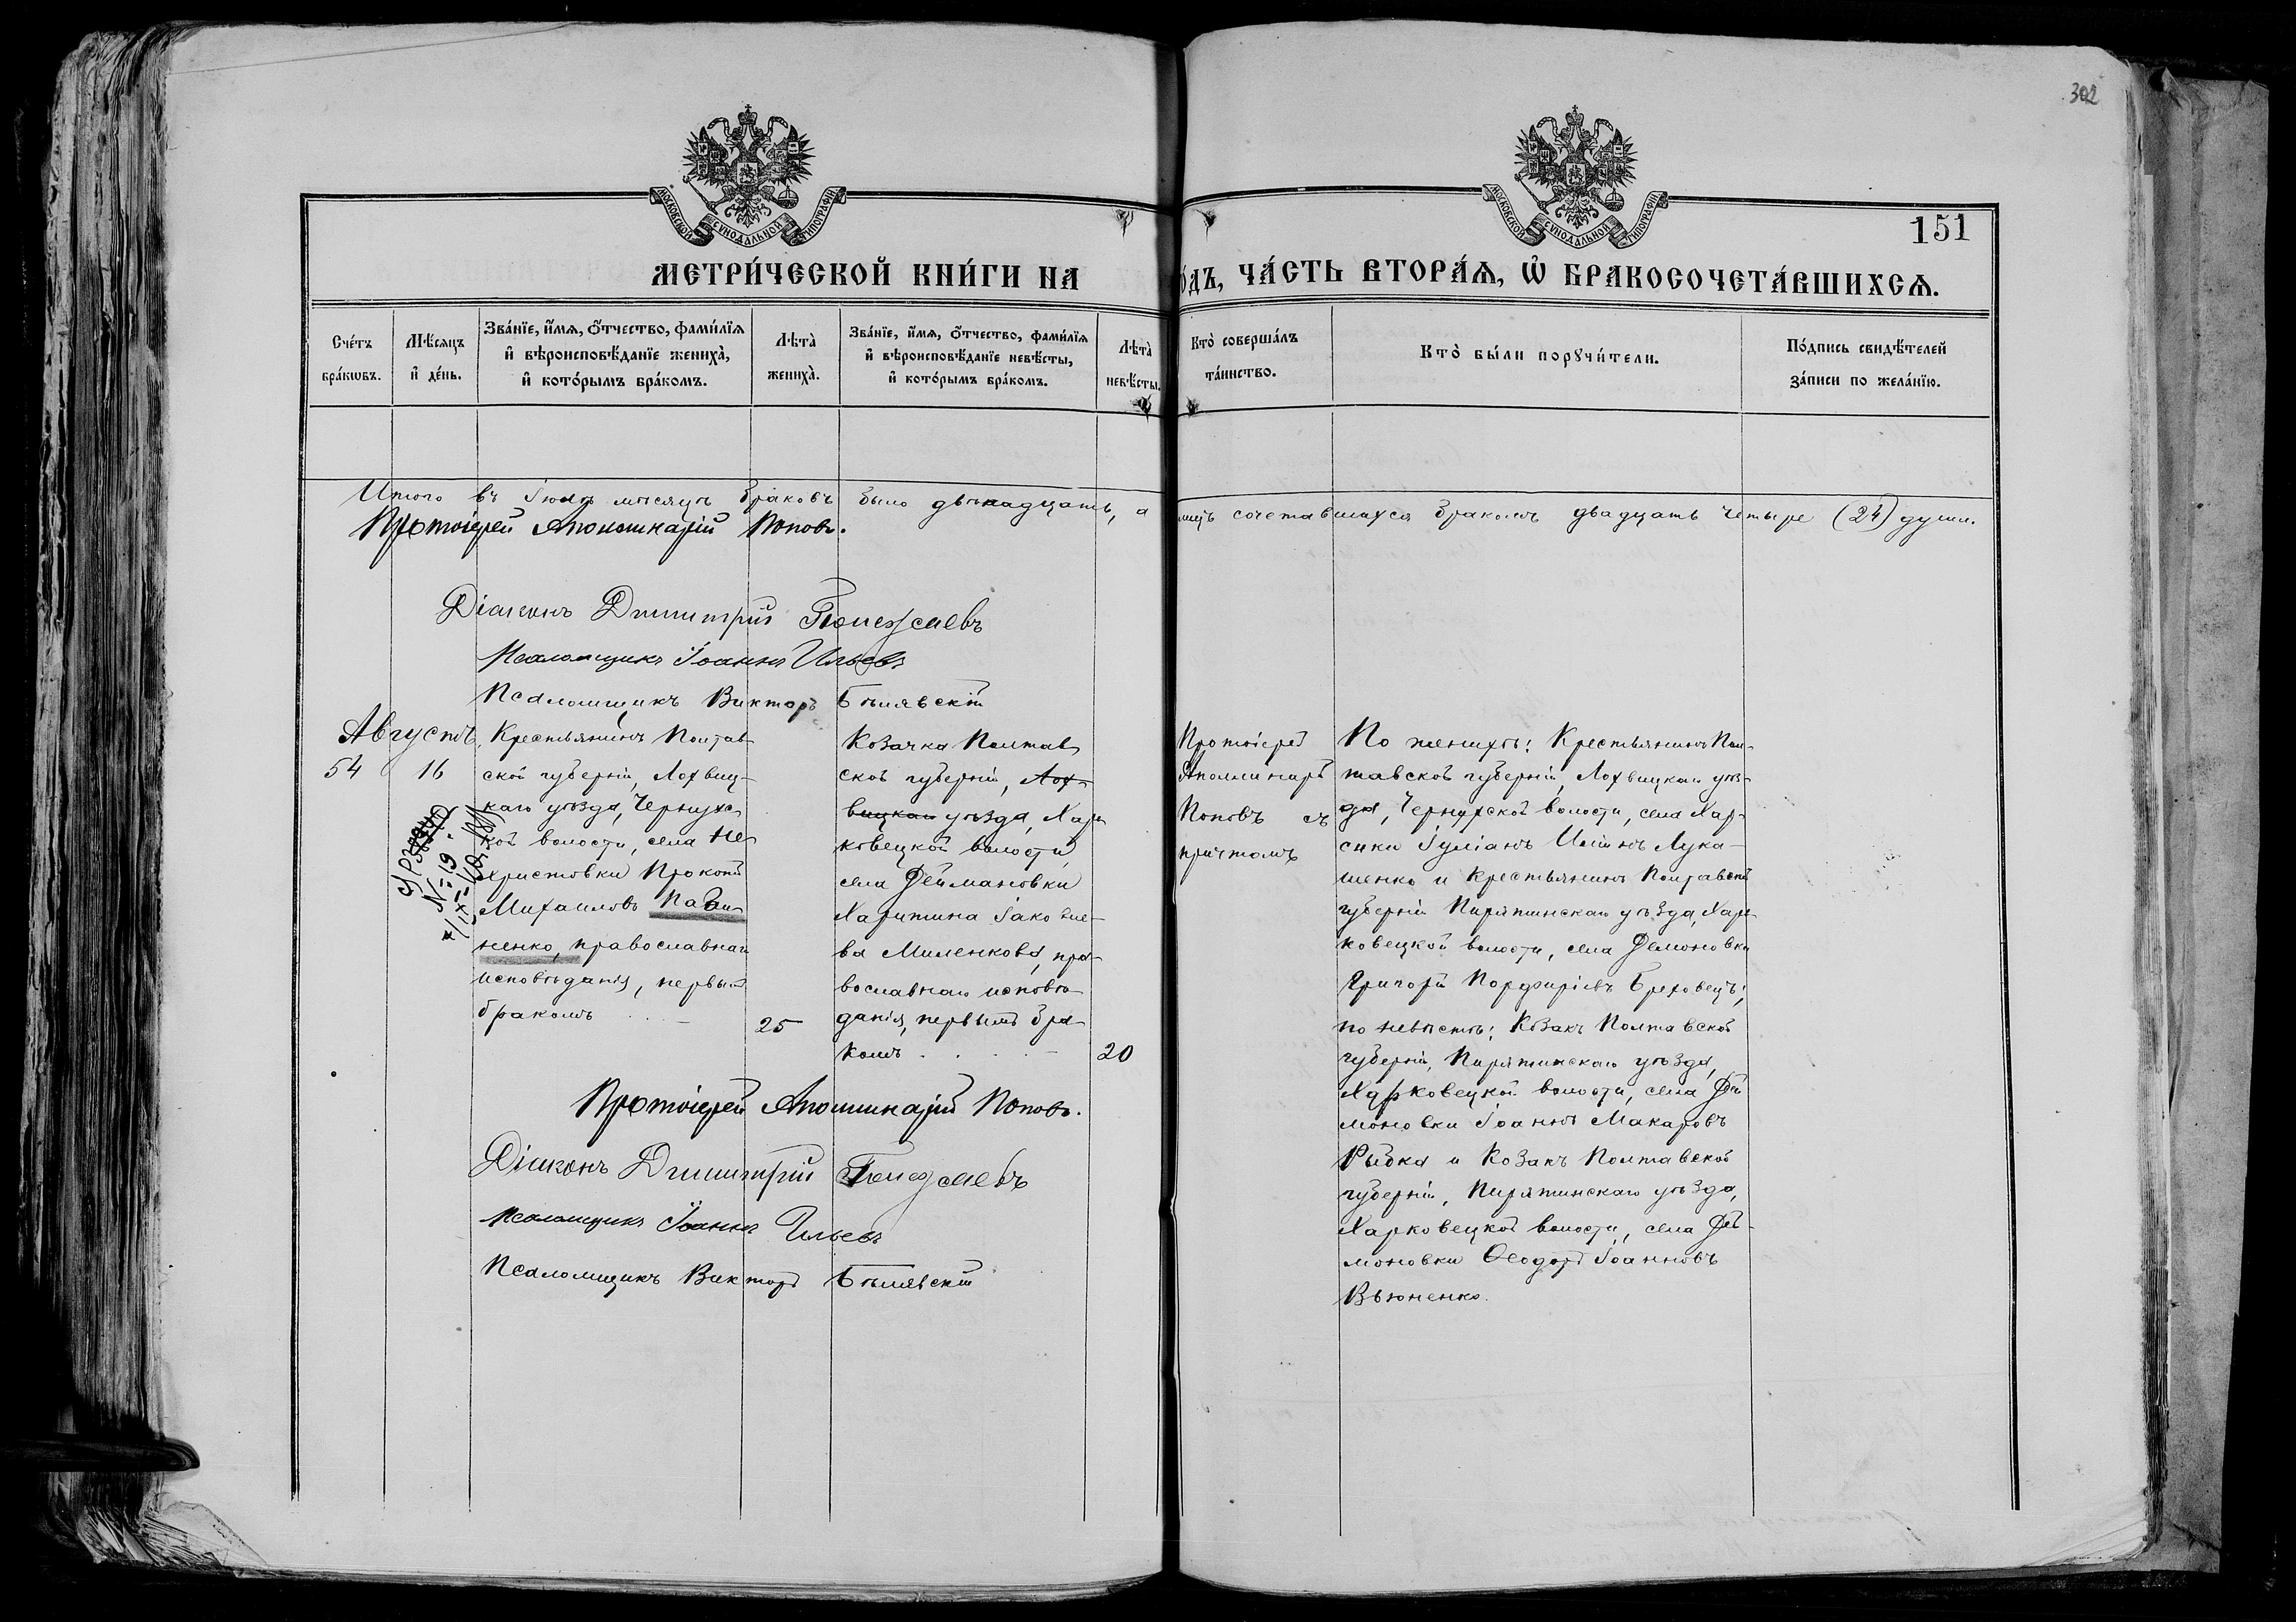 302
МОСКОВСКОЙ СѴНОДАЛЬНОЙ ТИПОГРАФІИ
МОСКОВСКОЙ СѴНОДАЛЬНОЙ ТИПОГРАФІИ
151
МЕТРИ́ЧЕСКОЙ КНИ́ГИ НА
О́ДЪ, ЧА́СТЬ ВТОРА́Ѧ, Ѡ҆ БРАКОСОЧЕТА́ВШИХСѦ.
Сче́тъ
бра́кѡвъ.
Мѣ́сяцъ
и҆ де́нь.
Зва́нїе, и҆́мѧ, ѻ҆́тчество, фами́лїѧ
и҆ вѣроисповѣ́данїе жениха̀,
и҆ кото́рымъ бра́комъ.
Лѣта̀
жениха̀.
Зва́нїе, и҆́мѧ, ѻ҆́тчество, фами́лїѧ
и҆ вѣроисповѣ́данїе невѣ́сты,
и҆ кото́рымъ бра́комъ.
Лѣта̀
невѣ́сты.
Кто̀ соверша́лъ
та́инство.
Кто̀ бы́ли порꙋчи́тели.
По́дпись свидѣ́телей
за́писи по жела́нїю.
Итого въ Іюлѣ мѣсяцѣ браковъ было двѣнадцать, а лицъ сочетавшихся бракомъ двадцать четыре (24) души.
Протоіерей Аполлинарій Поповъ.
Діаконъ Димитрій
Псаломщикъ Іоаннъ Ильевъ
Псаломщикъ Викторъ Бѣлявскій
Августъ.
54 16
N: 19
Крестьянинъ Полтав-
ской губерніи, Лохвиц-
каго уѣзда, Чернухс-
кой волости, села Не-
христовки Прокопій
Михаиловъ
ненко, православнаго
исповѣданія, первымъ
бракомъ
25
Козачка Полтав-
ской губерніи, Лох-
вицкаго уѣзда, Харь-
ковецкой волости,
села Деймановки
Харитина Іаковле-
ва Миленкова, пра-
вославнаго исповѣ-
данія, первымъ бра-
комъ
20
Протоіерей
Аполлинарій
Поповъ съ
причтомъ
По женихѣ: Крестьянинъ Пол-
тавской губерніи, Лохвицкаго уѣз-
да, Чернухской волости, села Хар-
сики Іуліанъ Илінъ Лука-
шенко и крестьянинъ Полтавской
губерніи Пирятинскаго уѣзда, Харь-
ковецкой волости, села Демоновки
Григорій Порфиріевъ Береховецъ;
по невѣстѣ: Козакъ Полтавской
губерніи, Пирятинскаго уѣзда,
Харковецкой волости, села Дей-
моновки Іоаннъ Макаровъ
Рыбка и Козакъ Полтавской
губерніи, Пирятинскаго уѣзда,
Харковецкой волости, села Дей-
моновки Ѳеодоръ Іоанновъ
Вьюненко.
Протоіерей Аполлинарій Поповъ.
Діаконъ Димитрій
Псаломщикъ Іоаннъ Ильевъ
Псаломщикъ Викторъ Бѣлявскій